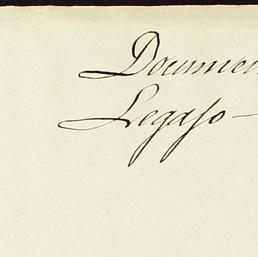 Documen
Legajo –